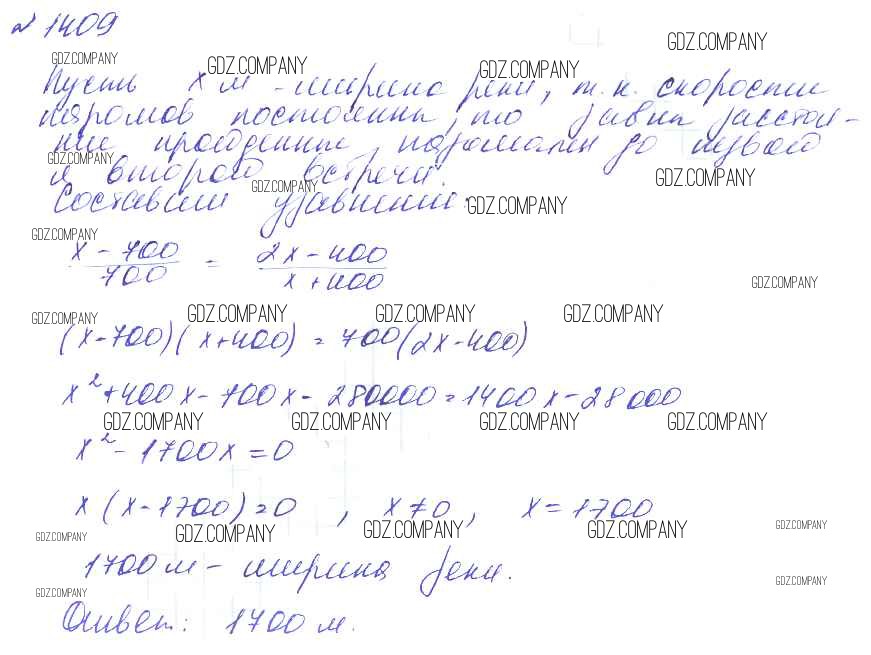 № 1409
GDZ.COMPANY GDZ.COMPANY GDZ.COMPANY GDZ.COMPANY
Пусть x м - ширина реки, т.к. скорости
паромов постоянны, то равны расстоя-
ние пройденные, паромами до первой
GDZ.COMPANY
и второй встречи.
GDZ.COMPANY GDZ.COMPANY
Составим уравнение:
GDZ.COMPANY
GDZ.COMPANY
x - 700 / 700 = 2x - 400 / x + 400
GDZ.COMPANY
GDZ.COMPANY GDZ.COMPANY GDZ.COMPANY GDZ.COMPANY
(x-700)(x+400) = 700(2x-400)
x² + 400x - 700x - 280000 = 1400x - 28000
GDZ.COMPANY GDZ.COMPANY GDZ.COMPANY GDZ.COMPANY
x² - 1700x = 0
x(x-1700)=0 , x≠0, x=1700
GDZ.COMPANY GDZ.COMPANY GDZ.COMPANY GDZ.COMPANY GDZ.COMPANY
1700 м - ширина реки.
GDZ.COMPANY GDZ.COMPANY
Ответ: 1700 м.